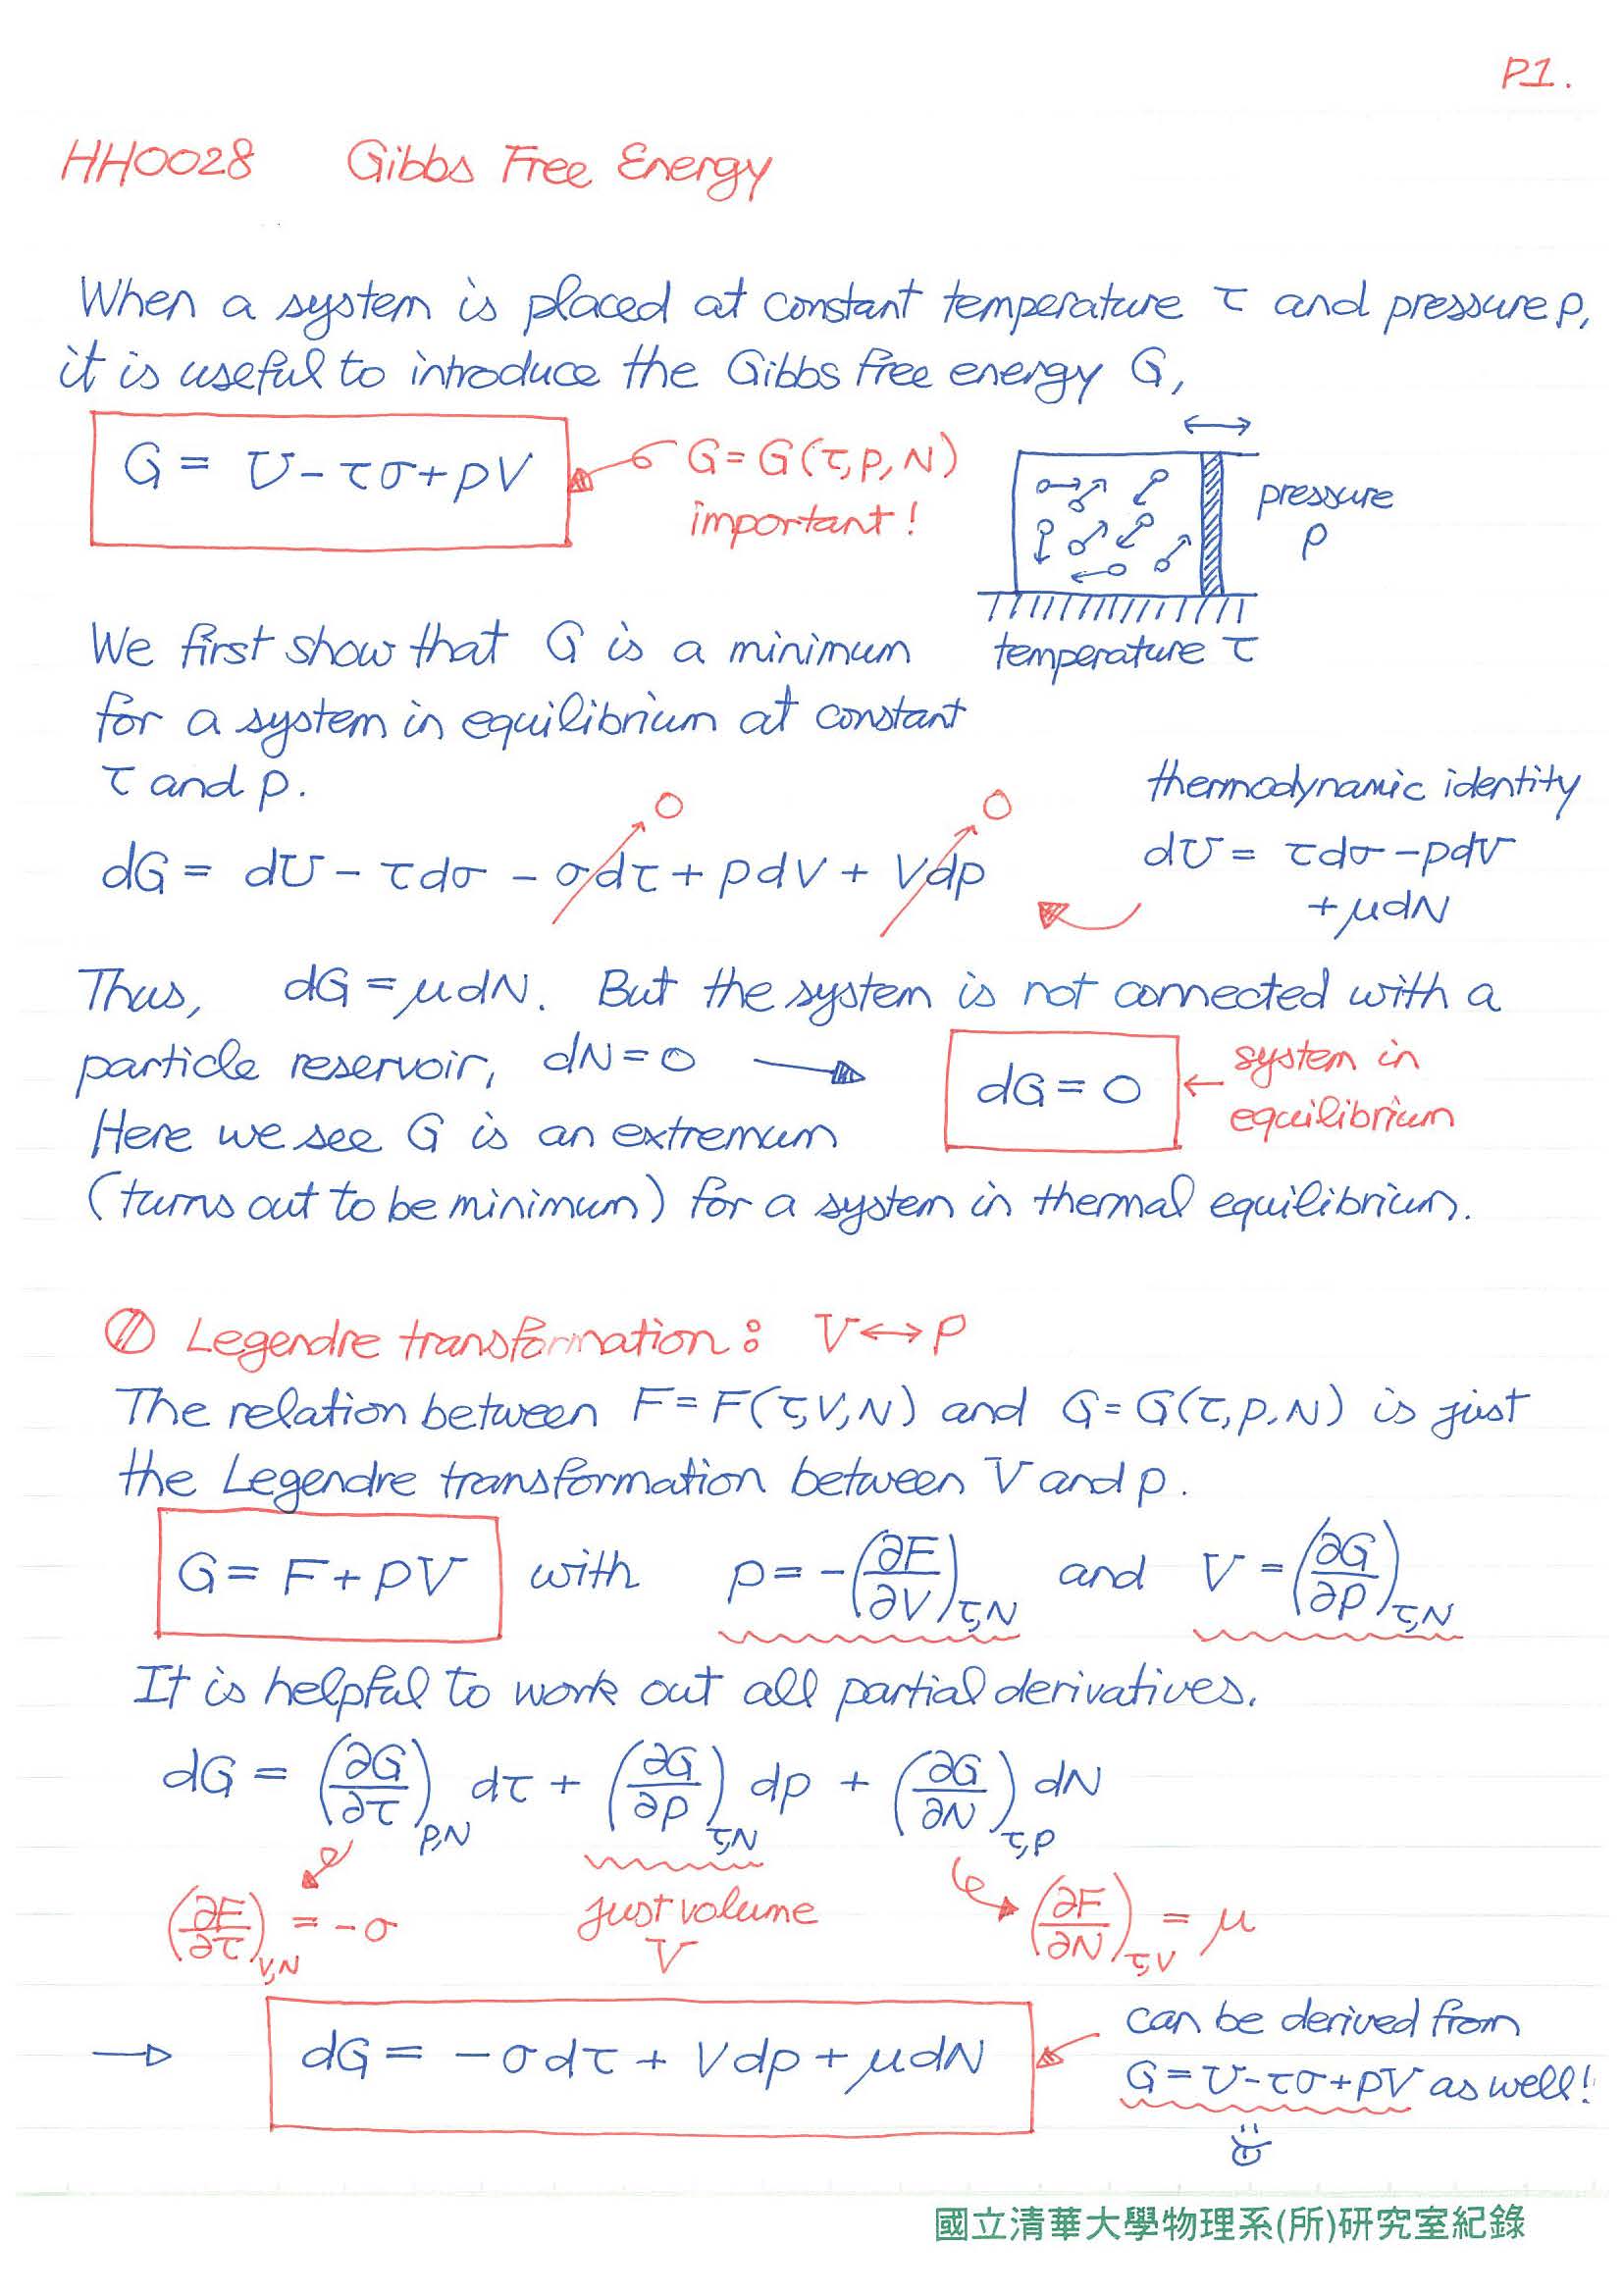 P1.
HH0028 Gibbs Free Energy
When a system is placed at constant temperature τ and pressure p,
it is useful to introduce the Gibbs free energy G,
G = U - τσ + pV
G = G(τ, p, N)
important!
pressure
p
temperature τ
We first show that G is a minimum
for a system in equilibrium at constant
τ and p.
thermodynamic identity
dU = τdσ - pdV
+ μdN
0 0
dG = dU - τdσ - σdτ + pdV + Vdp
Thus, dG = μdN. But the system is not connected with a
particle reservoir, dN = 0 → dG = 0 ← system in
equilibrium
Here we see G is an extremum
(turns out to be minimum) for a system in thermal equilibrium.
Legendre transformation: V ↔ p
The relation between F = F(τ, V, N) and G = G(τ, p, N) is just
the Legendre transformation between V and p.
G = F + pV with p = -(∂F/∂V)τ,N and V = (∂G/∂p)τ,N
It is helpful to work out all partial derivatives.
dG = (∂G/∂τ)p,N dτ + (∂G/∂p)τ,N dp + (∂G/∂N)τ,p dN
(∂F/∂τ)V,N = -σ
just volume
V
(∂F/∂N)τ,V = μ
→ dG = -σdτ + Vdp + μdN
can be derived from
G = U - τσ + pV as well!
國立清華大學物理系(所)研究室紀錄